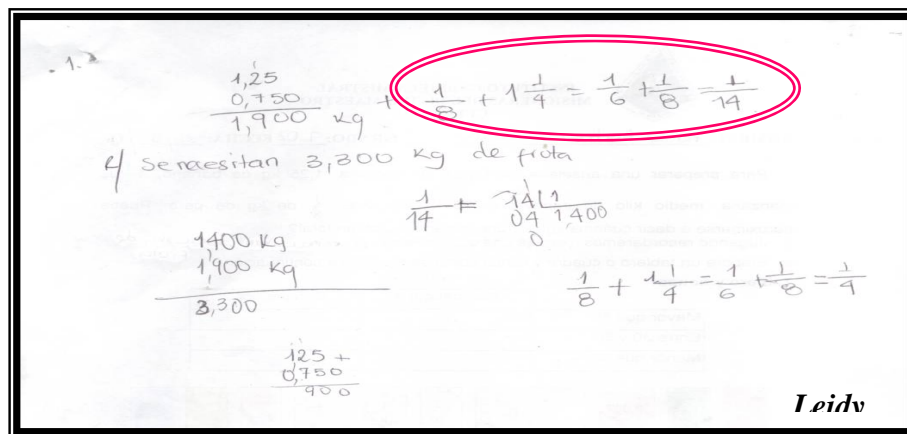 1.
1,25
0,750
1,900 Kg + 1/8 + 1 1/4 = 1/6 + 1/8 = 1/14
R/ se nacesitan 3,300 Kg de fruta
1/14 = 14 | 1
04 1,400
0
1400 Kg
1,900 Kg
3,300
1/8 + 1 1/4 = 1/6 + 1/8 = 1/4
125 +
0,750
900
Leidy